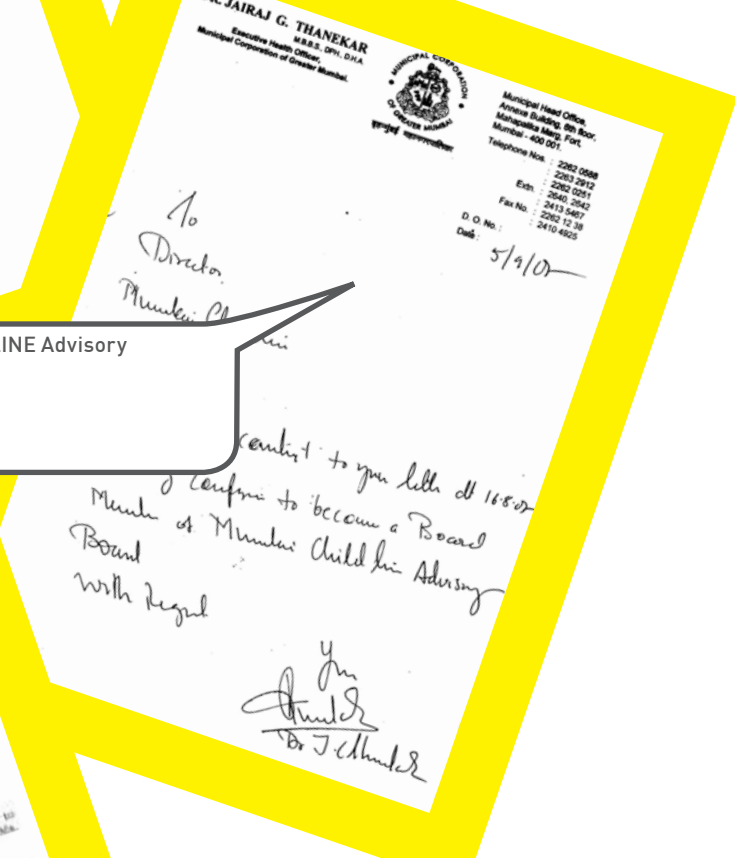 JAIRAJ G. THANEKAR
M.B.B.S., DPH., D.H.A.
Executive Health Officer,
Municipal Corporation of Greater Mumbai.
MUNICIPAL CORPORATION
OF GREATER MUMBAI
Municipal Head Office,
Annexe Building, 6th floor,
Mahapalika Marg, Fort,
Mumbai - 400 001.
Telephone Nos. : 2262 0588
: 2263 2912
: 2262 0251
Extn. : 2640, 2642
: 2413 5467
Fax No. : 2262 12 38
: 2410 4925
D. O. No. :
Date : 5/9/02
To
Director
Mumbai
INE Advisory
to your letter dt 16.8.02
confirm to become a Board
Member of Mumbai Child line Advisory
Board
with Regard